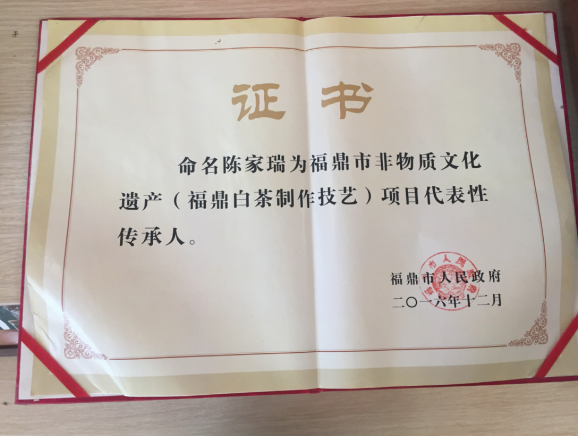 证书
命名陈家瑞为福鼎市非物质文化
遗产（福鼎白茶制作技艺）项目代表性
传承人。
福鼎市人民政府
二〇一六年十二月